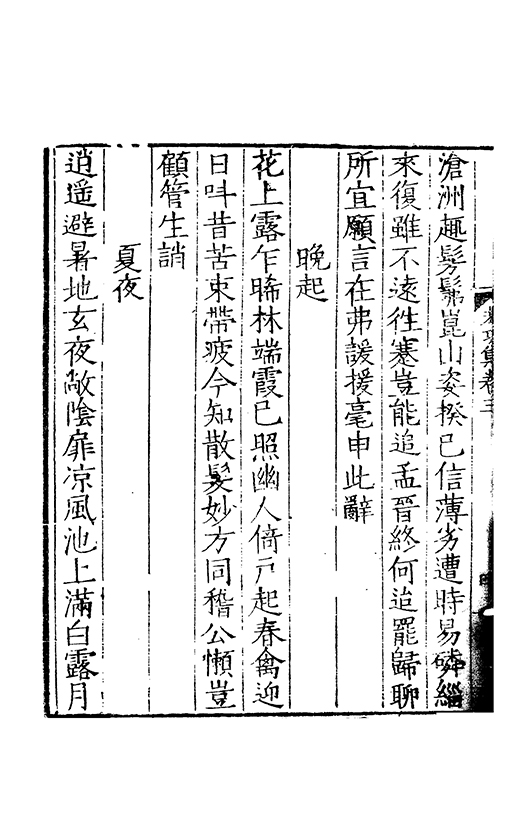 滄洲趣髣髴崑山姿揆已信薄劣遭時易磷緇
來復雖不遠徃蹇豈能追孟晉終何迨罷歸聊
所宜願言在弗諼援毫申此辭
晚起
花上露乍晞林端霞已照幽人倚戸起春禽迎
日呌昔苦束帶疲今知散髮妙方同稽公懶豈
顧管生誚
夏夜
逍遥避暑地玄夜敞陰扉凉風池上滿白露月